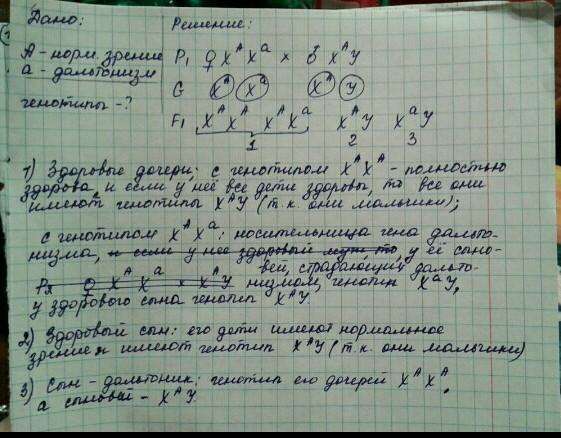 Дано:
Решение:
А - норм. зрение
а - дальтонизм
генотипы - ?
P₁ ♀ Xᴬ Xᵃ × ♂ Xᴬ Y
G Xᴬ Xᵃ Xᴬ Y
F₁ Xᴬ Xᴬ Xᴬ Xᵃ Xᴬ Y Xᵃ Y
1 2 3
1) Здоровые дочери: с генотипом Xᴬ Xᴬ - полностью
здорова, и если у неё все дети здоровы, то все они
имеют генотипы Xᴬ Y (т.к. они мальчики);
с генотипом Xᴬ Xᵃ: носительница гена дальто-
низма, и если у неё здоровый муж, то, у её сыно-
вей, страдающих дальто-
P₂ ♀ Xᴬ Xᵃ × Xᴬ Y низмом, генотип Xᵃ Y,
у здорового сына генотип Xᴬ Y.
2) Здоровый сын: его дети имеют нормальное
зрение и имеют генотип Xᴬ Y (т.к. они мальчики)
3) Сын - дальтоник: генотип его дочерей Xᴬ Xᴬ,
а сыновей - Xᴬ Y.